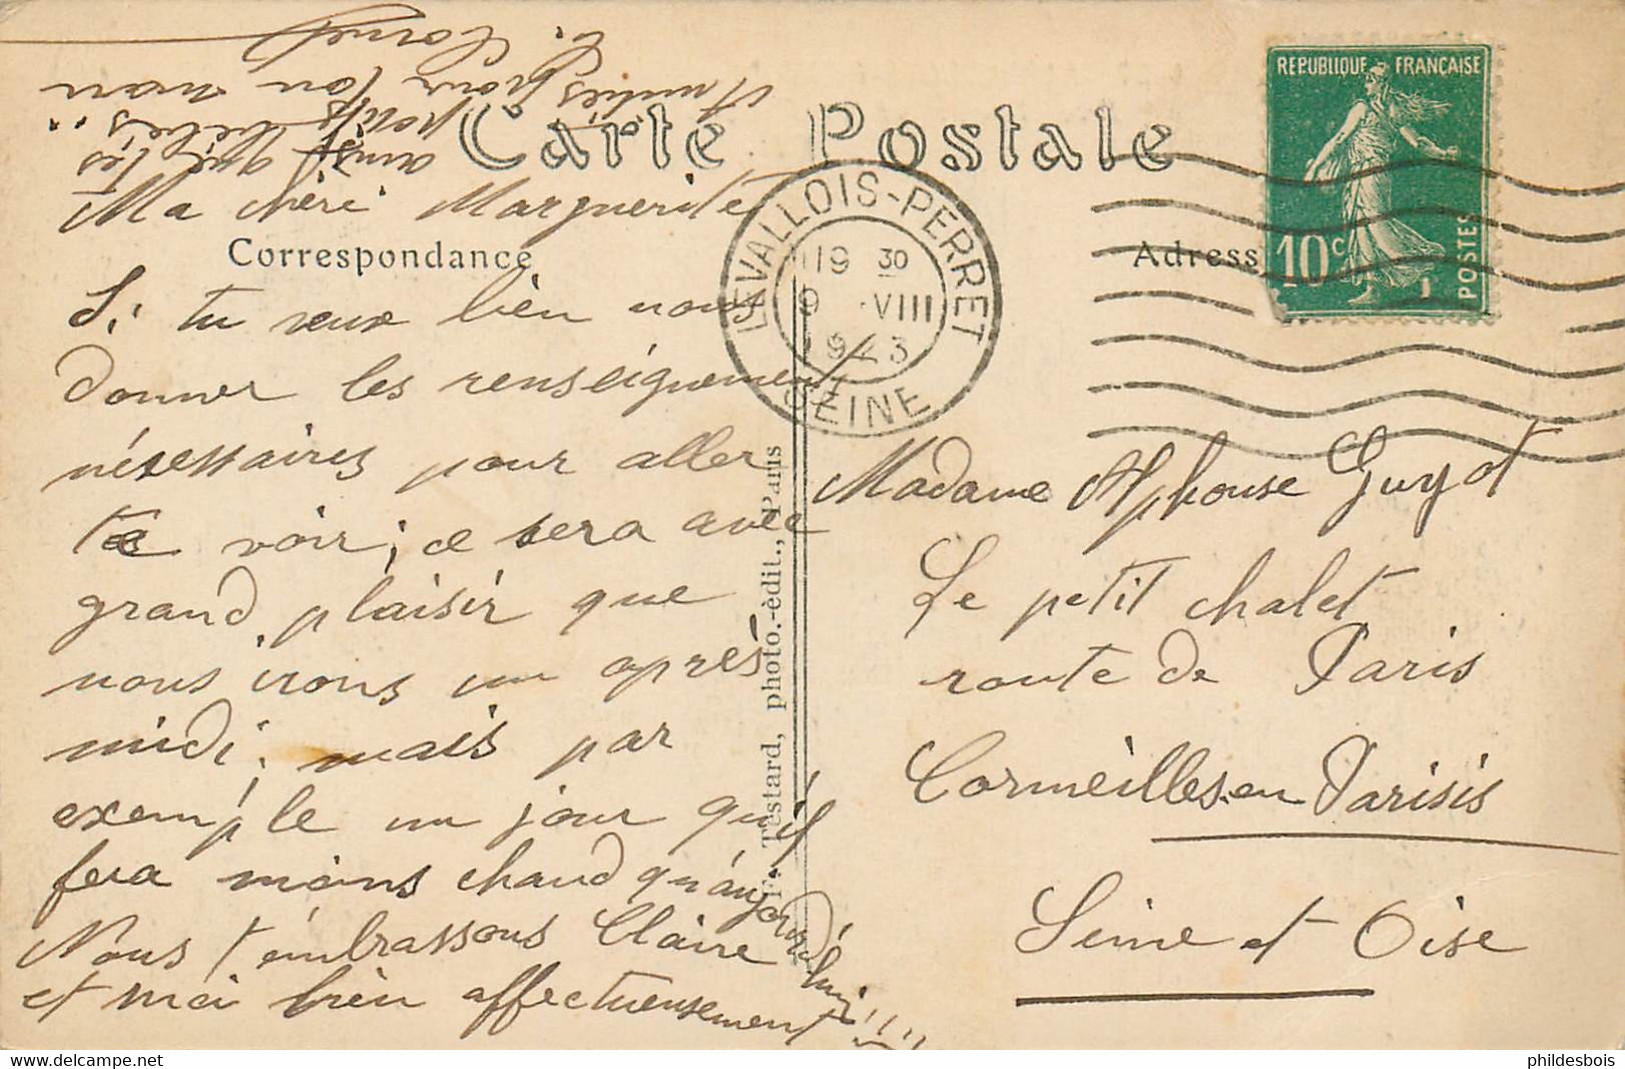 Carte Postale
Correspondance
Adress
REPUBLIQUE FRANÇAISE
10c
POSTES
LEVALLOIS-PERRET
19 30
9 VIII
1923
SEINE
F. Testard, photo.-édit., Paris
Ma chéri Marguerite
Si tu veux bien nous
donner les renseignement
nésessaires pour aller
te voir; ce sera avec
grand plaisir que
nous irons un après
midi; mais par
exemple un jour qu'il
fera moins chaud qu'aujourd'hui!!!!
Nous t'embrassons Claire
et moi bien affectueusement
ainsi que tes
petits bébés..
Amitiés pour ton mari
C. Cornet
Madame Alphonse Guyot
Le petit chalet
route de Paris
Cormeilles en Parisis
Seine et Oise
delcampe.net
phildesbois